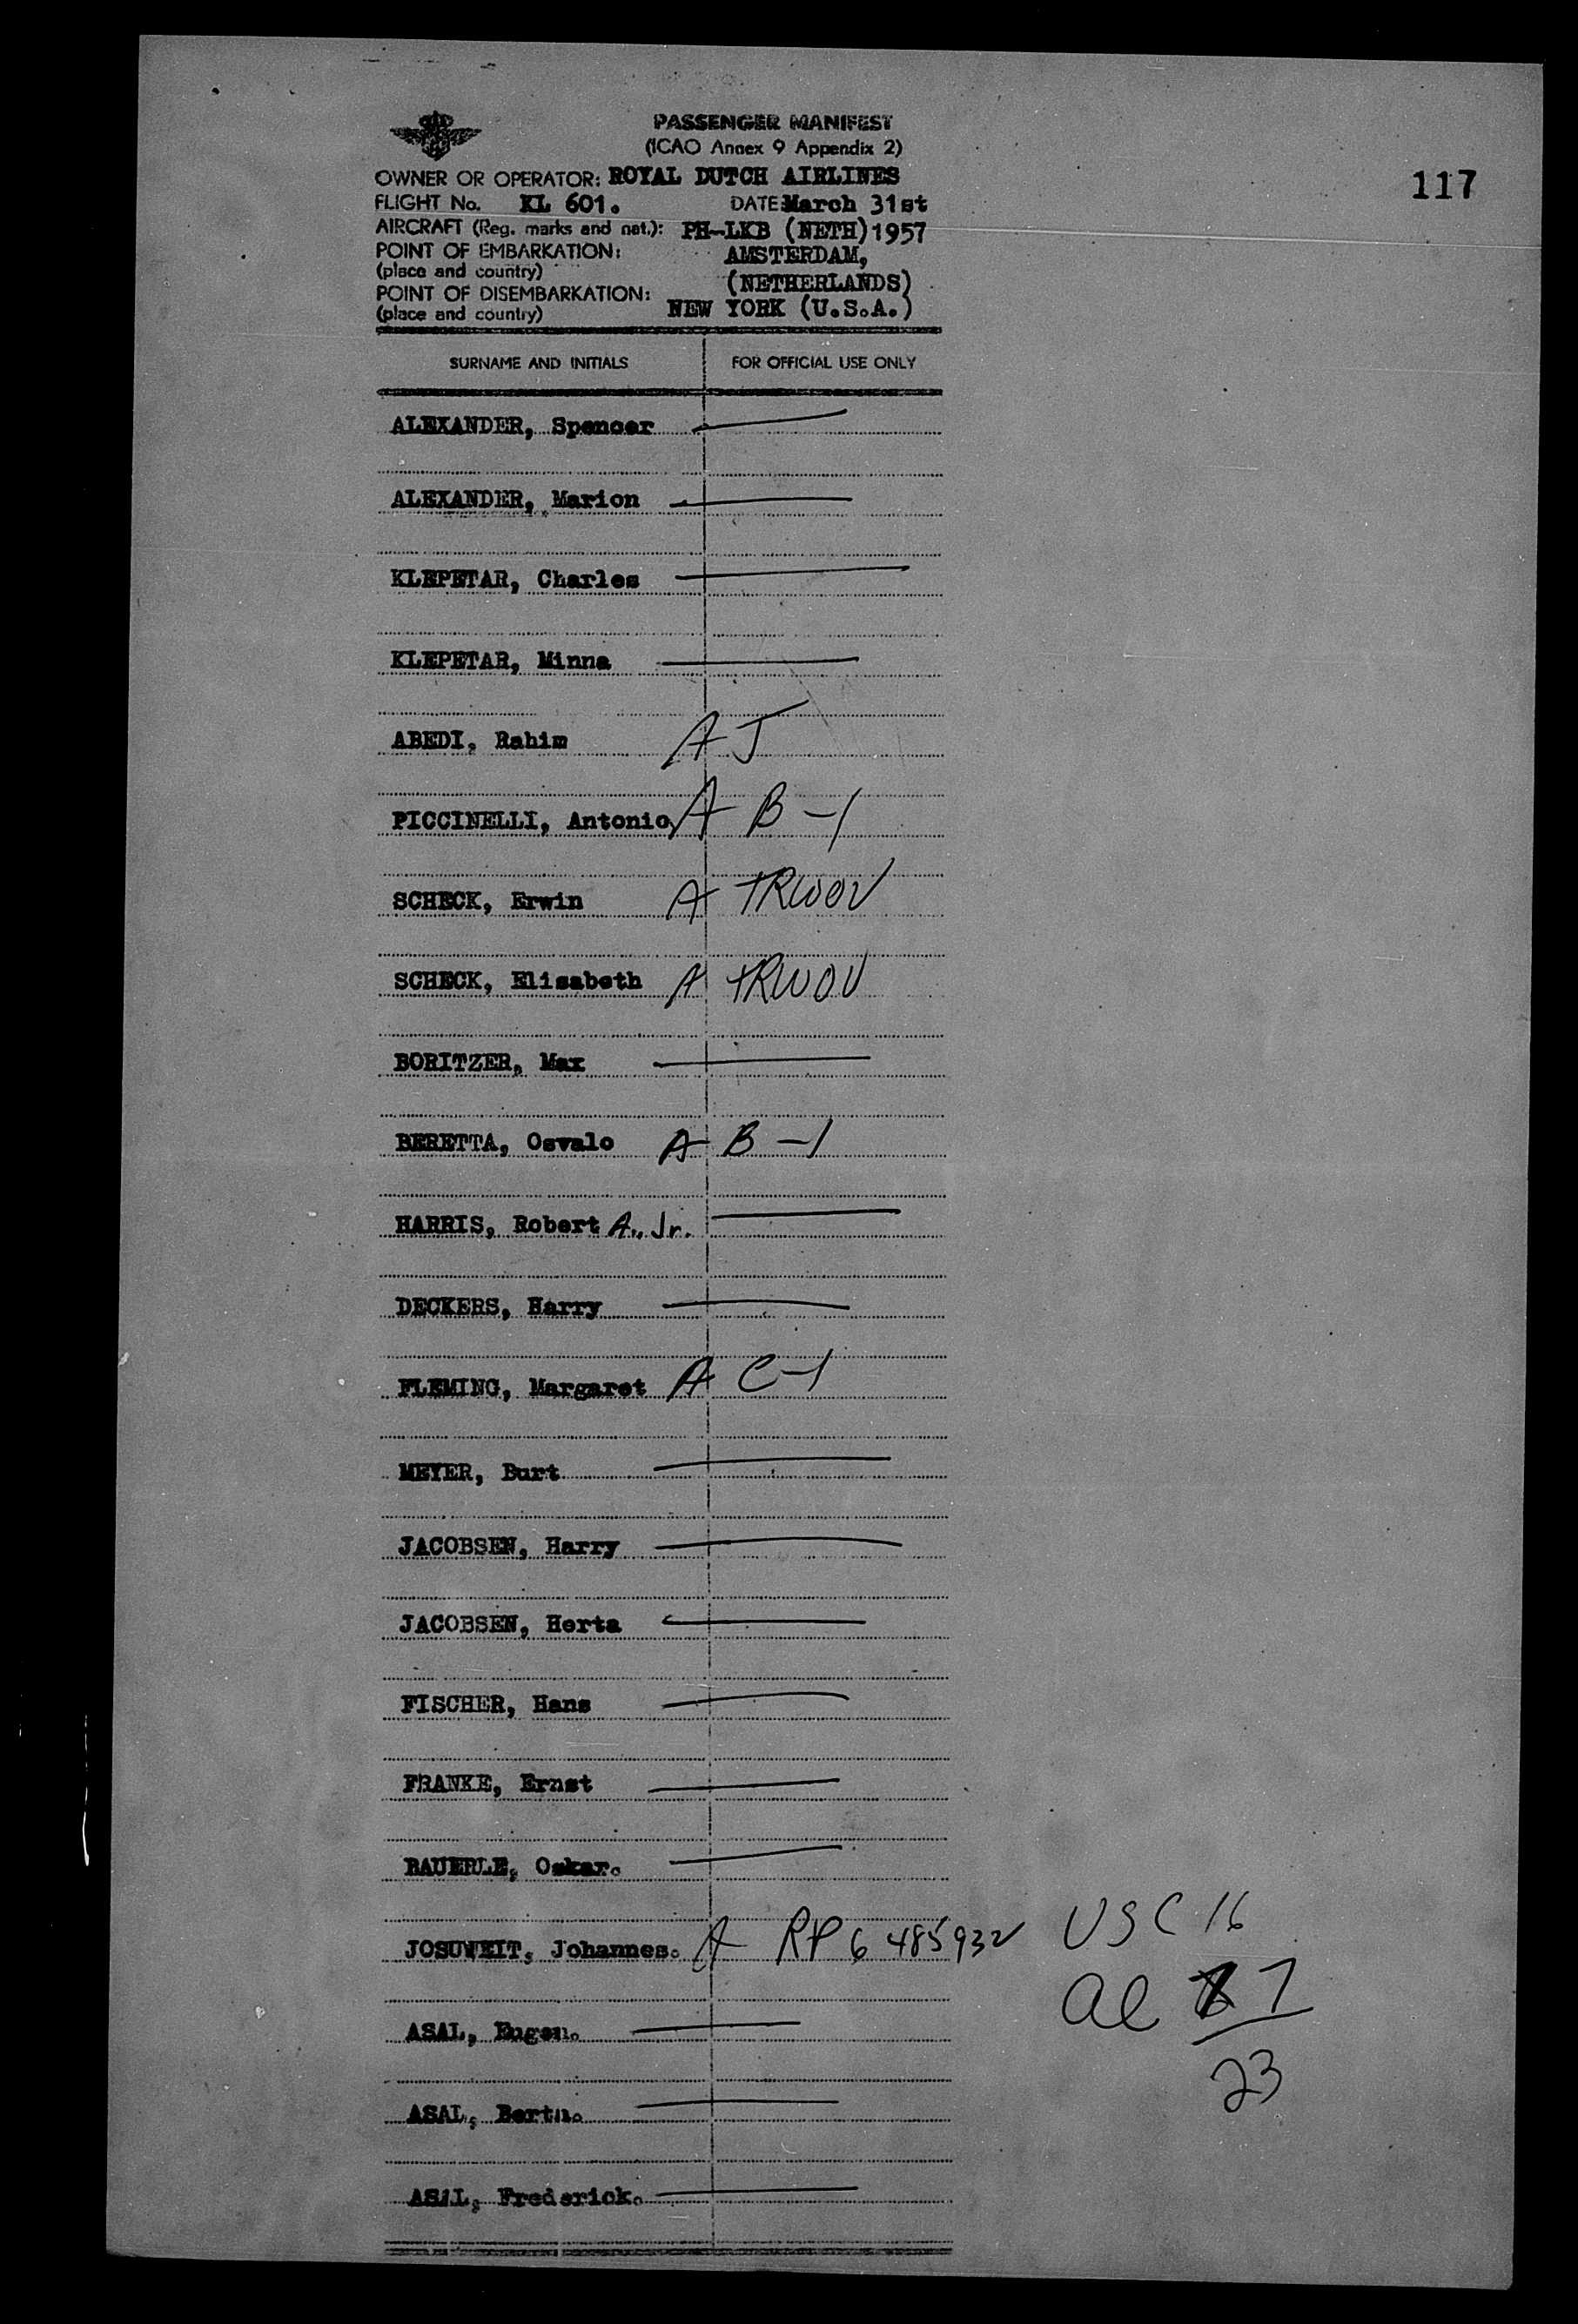 PASSENGER MANIFEST
(ICAO Annex 9 Appendix 2)
117
OWNER OR OPERATOR: ROYAL DUTCH AIRLINES
FLIGHT No. KL 601. DATE: March 31st
AIRCRAFT (Reg. marks and nat.): PH-LKB (NETH) 1957
POINT OF EMBARKATION: AMSTERDAM,
(place and country) (NETHERLANDS)
POINT OF DISEMBARKATION: NEW YORK (U.S.A.)
(place and country)
SURNAME AND INITIALS FOR OFFICIAL USE ONLY
ALEXANDER, Spencer
ALEXANDER, Marion
KLEPETAR, Charles
KLEPETAR, Minna
ABEDI, Rahim A J
PICCINELLI, Antonio A B-1
SCHECK, Erwin A TRWOV
SCHECK, Elisabeth A TRWOV
BORITZER, Max
BERETTA, Osvalo A B-1
HARRIS, Robert A., Jr.
DECKERS, Harry
FLEMING, Margaret A C-1
MEYER, Burt
JACOBSEN, Harry
JACOBSEN, Herta
FISCHER, Hans
FRANKE, Ernst
BAUERLE, Oskar.
JOSUWEIT, Johannes. A RP 6 485932 USC 16
al 7
ASAL, Eugen.
23
ASAL, Berta.
ASAL, Frederick.